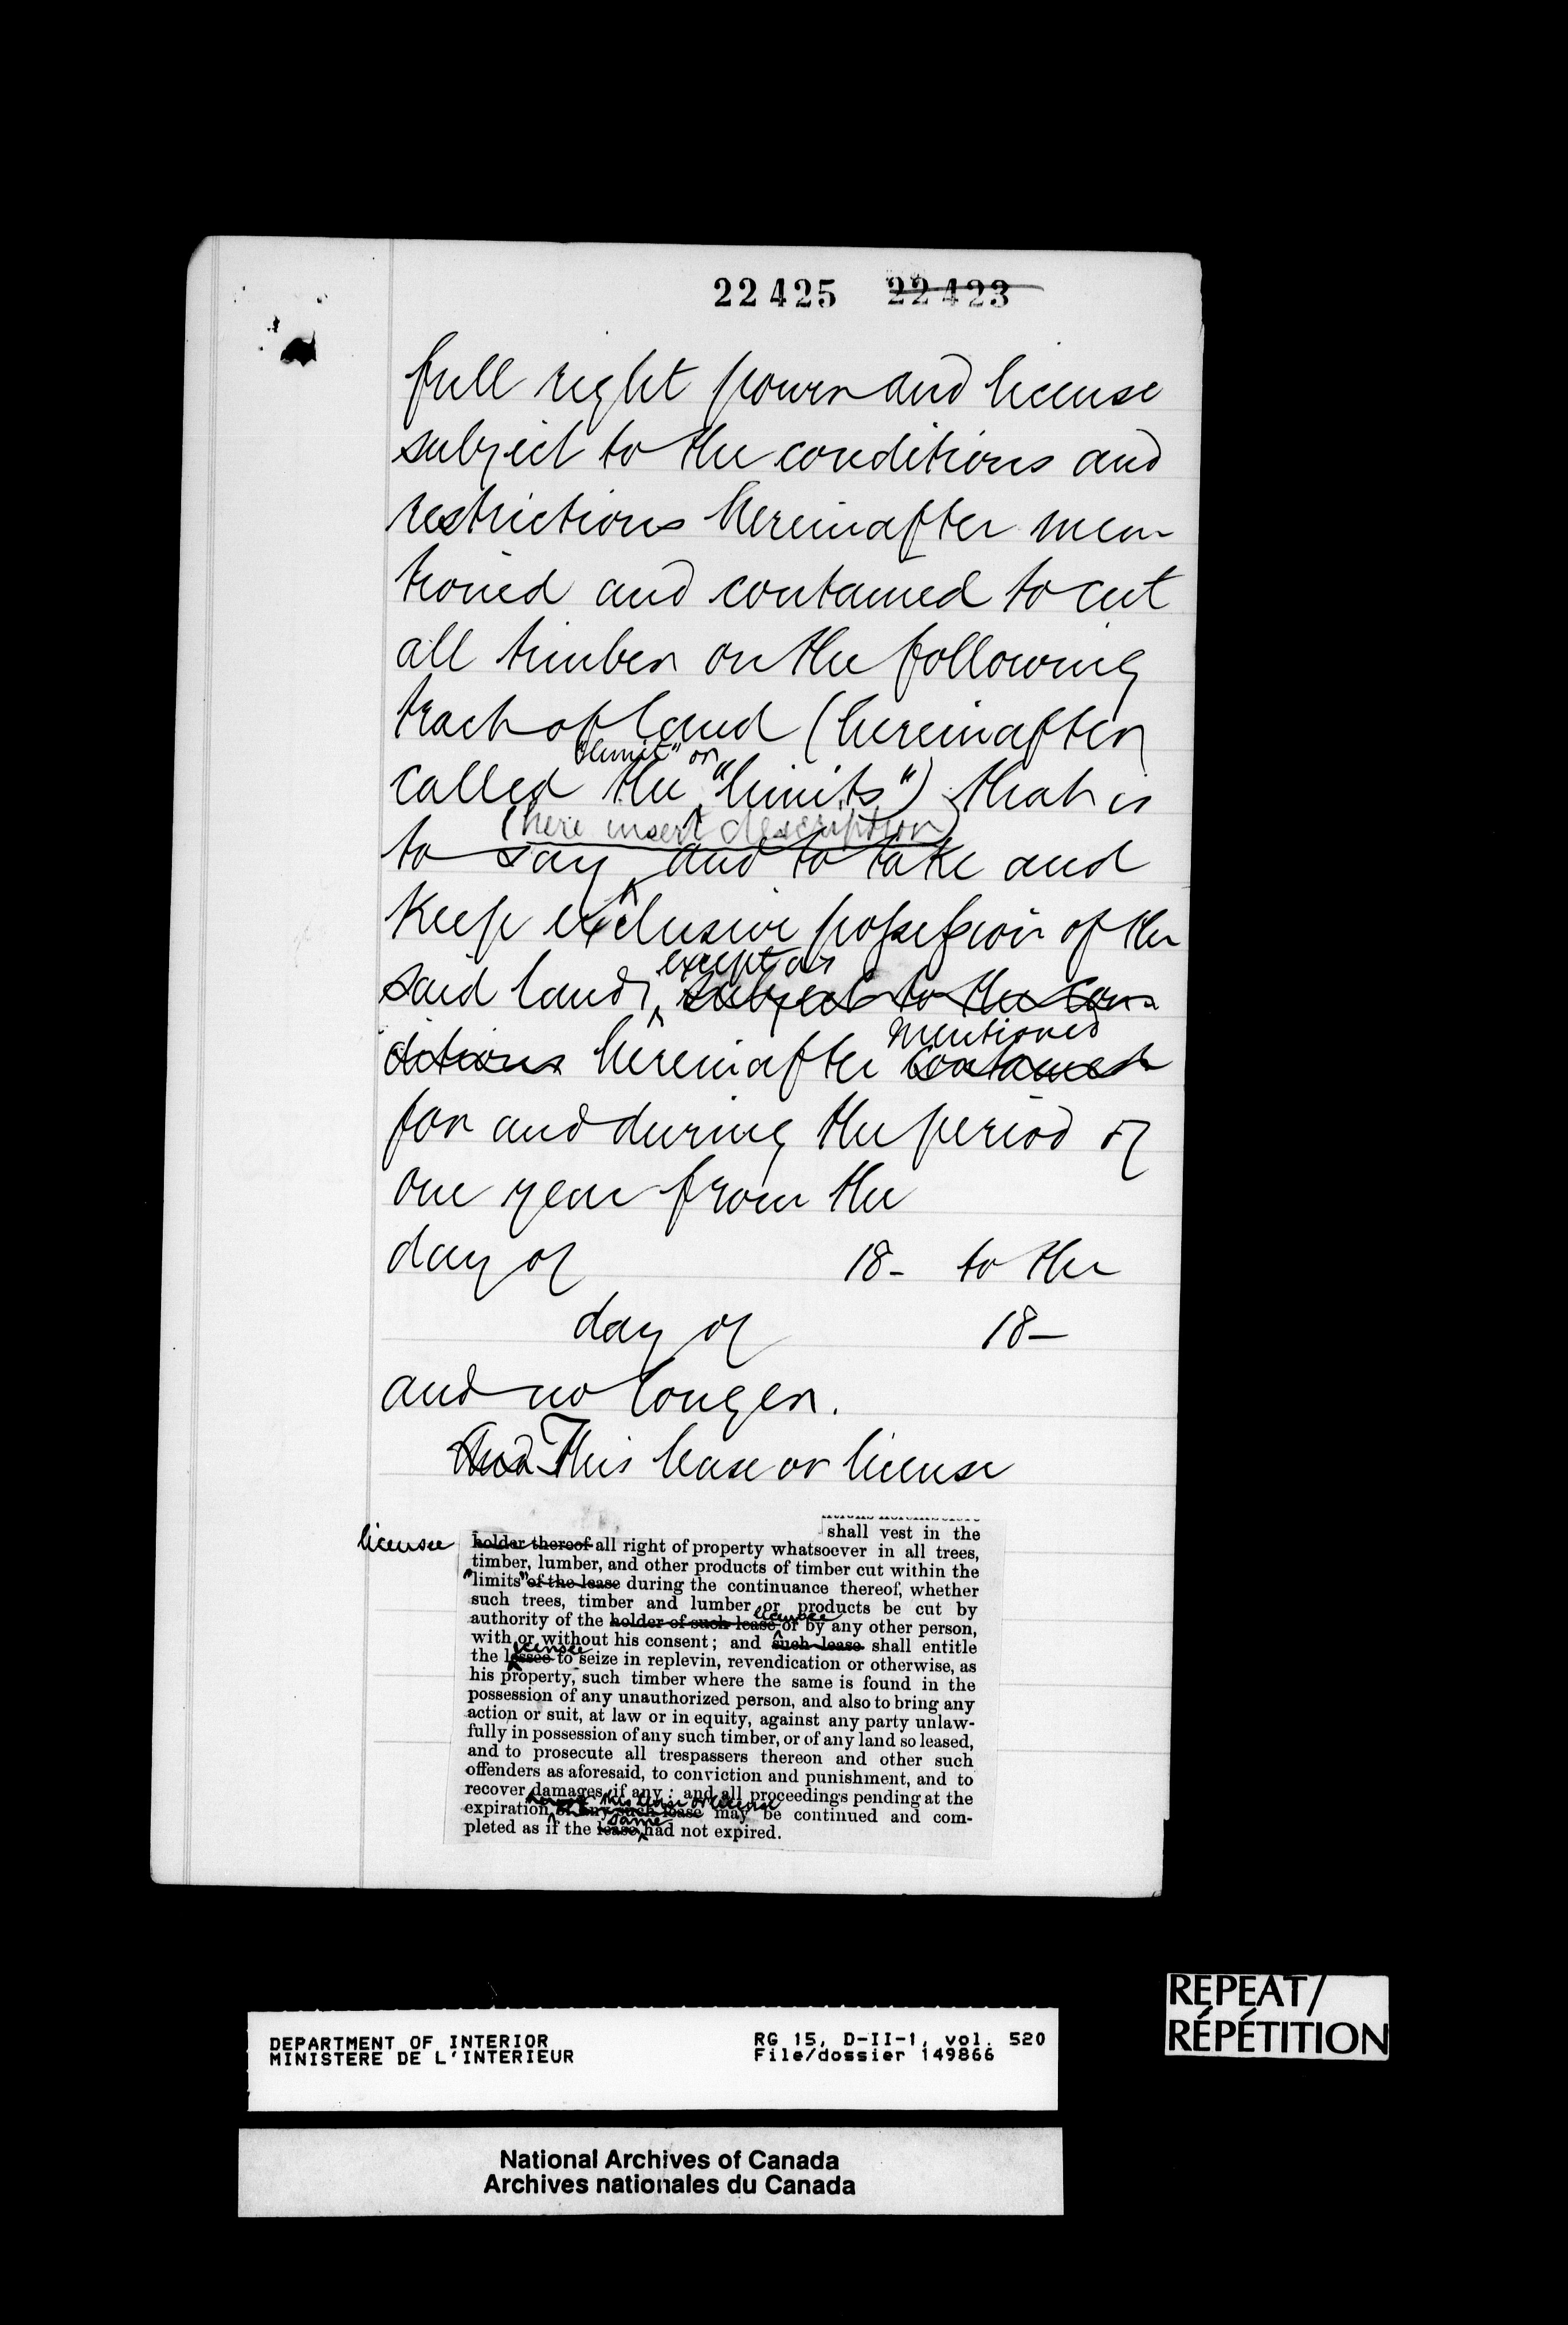 22425 22423
full right power and license
subject to the conditions and
restrictions hereinafter men
tioned and contained to cut
all timber on the following
tract of land (hereinafter
"limit" or
called the "limits") that is
(here insert description)
to say and to take and
keep exclusive possession of the
except as
said land, subject to the con
mentioned
ditions hereinafter contained
for and during the period of
one year from the
day of 18- to the
day of 18-
and no longer.
And This lease or license
shall vest in the
licensee holder thereof all right of property whatsoever in all trees,
timber, lumber, and other products of timber cut within the
"limits" of the lease during the continuance thereof, whether
such trees, timber and lumber or products be cut by
licensee
authority of the holder of such lease or by any other person,
with or without his consent; and such lease shall entitle
licensee
the lessee to seize in replevin, revendication or otherwise, as
his property, such timber where the same is found in the
possession of any unauthorized person, and also to bring any
action or suit, at law or in equity, against any party unlaw-
fully in possession of any such timber, or of any land so leased,
and to prosecute all trespassers thereon and other such
offenders as aforesaid, to conviction and punishment, and to
recover damages, if any: and all proceedings pending at the
this lease or license
expiration of any such lease may be continued and com-
same
pleted as if the lease had not expired.
DEPARTMENT OF INTERIOR RG 15, D-II-1, vol. 520
MINISTERE DE L'INTERIEUR File/dossier 149866
REPEAT/
RÉPÉTITION
National Archives of Canada
Archives nationales du Canada